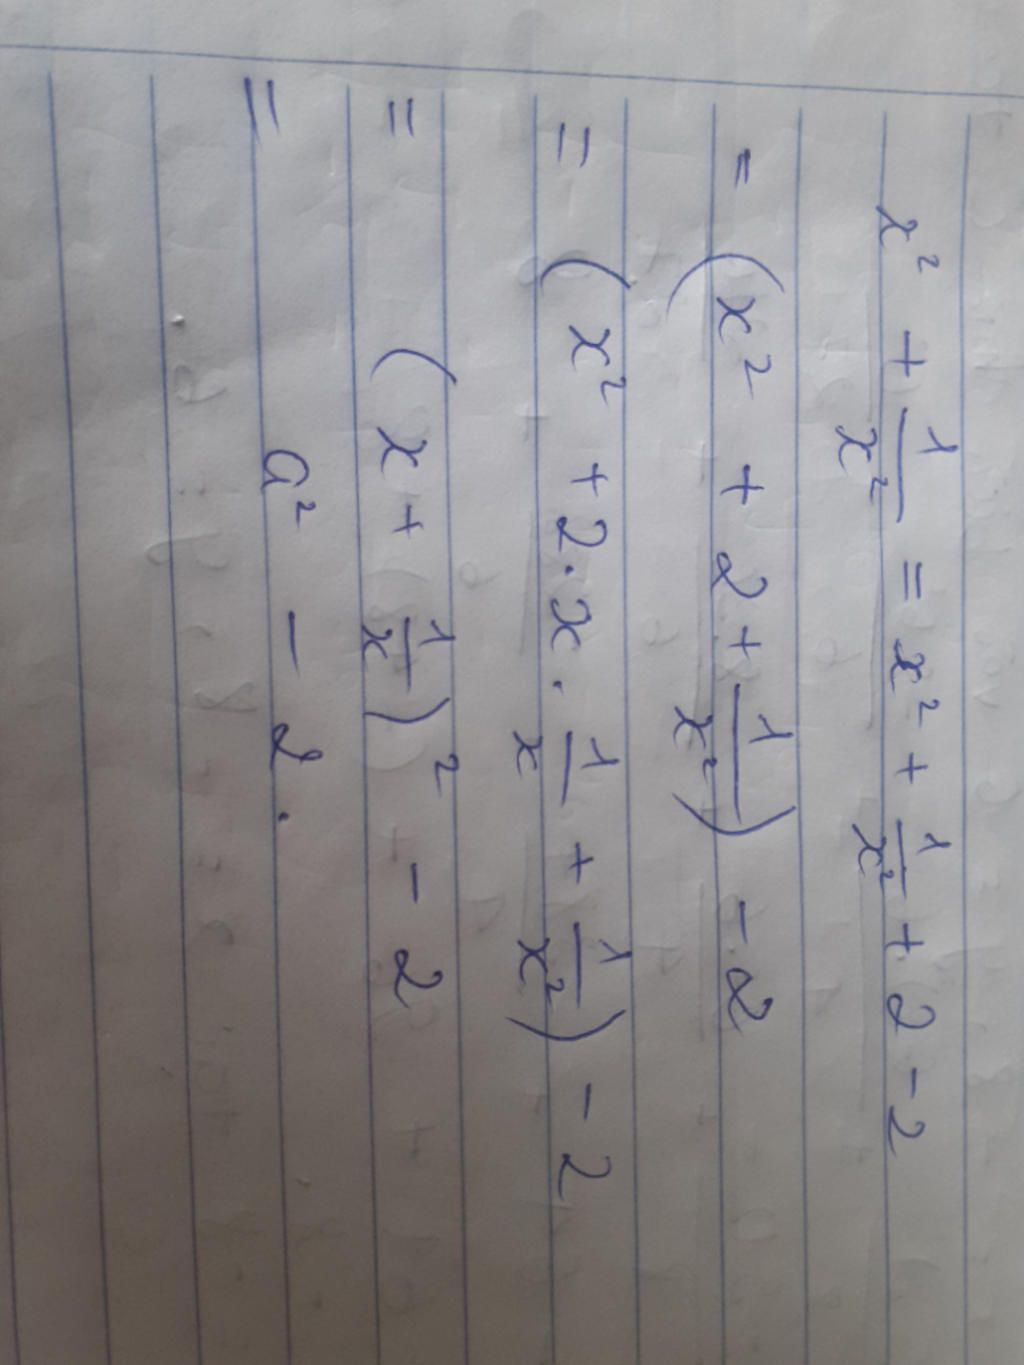 x² + 1/x² = x² + 1/x² + 2 - 2
= (x² + 2 + 1/x²) - 2
= (x² + 2·x·1/x + 1/x²) - 2
= (x + 1/x)² - 2
= a² - 2.